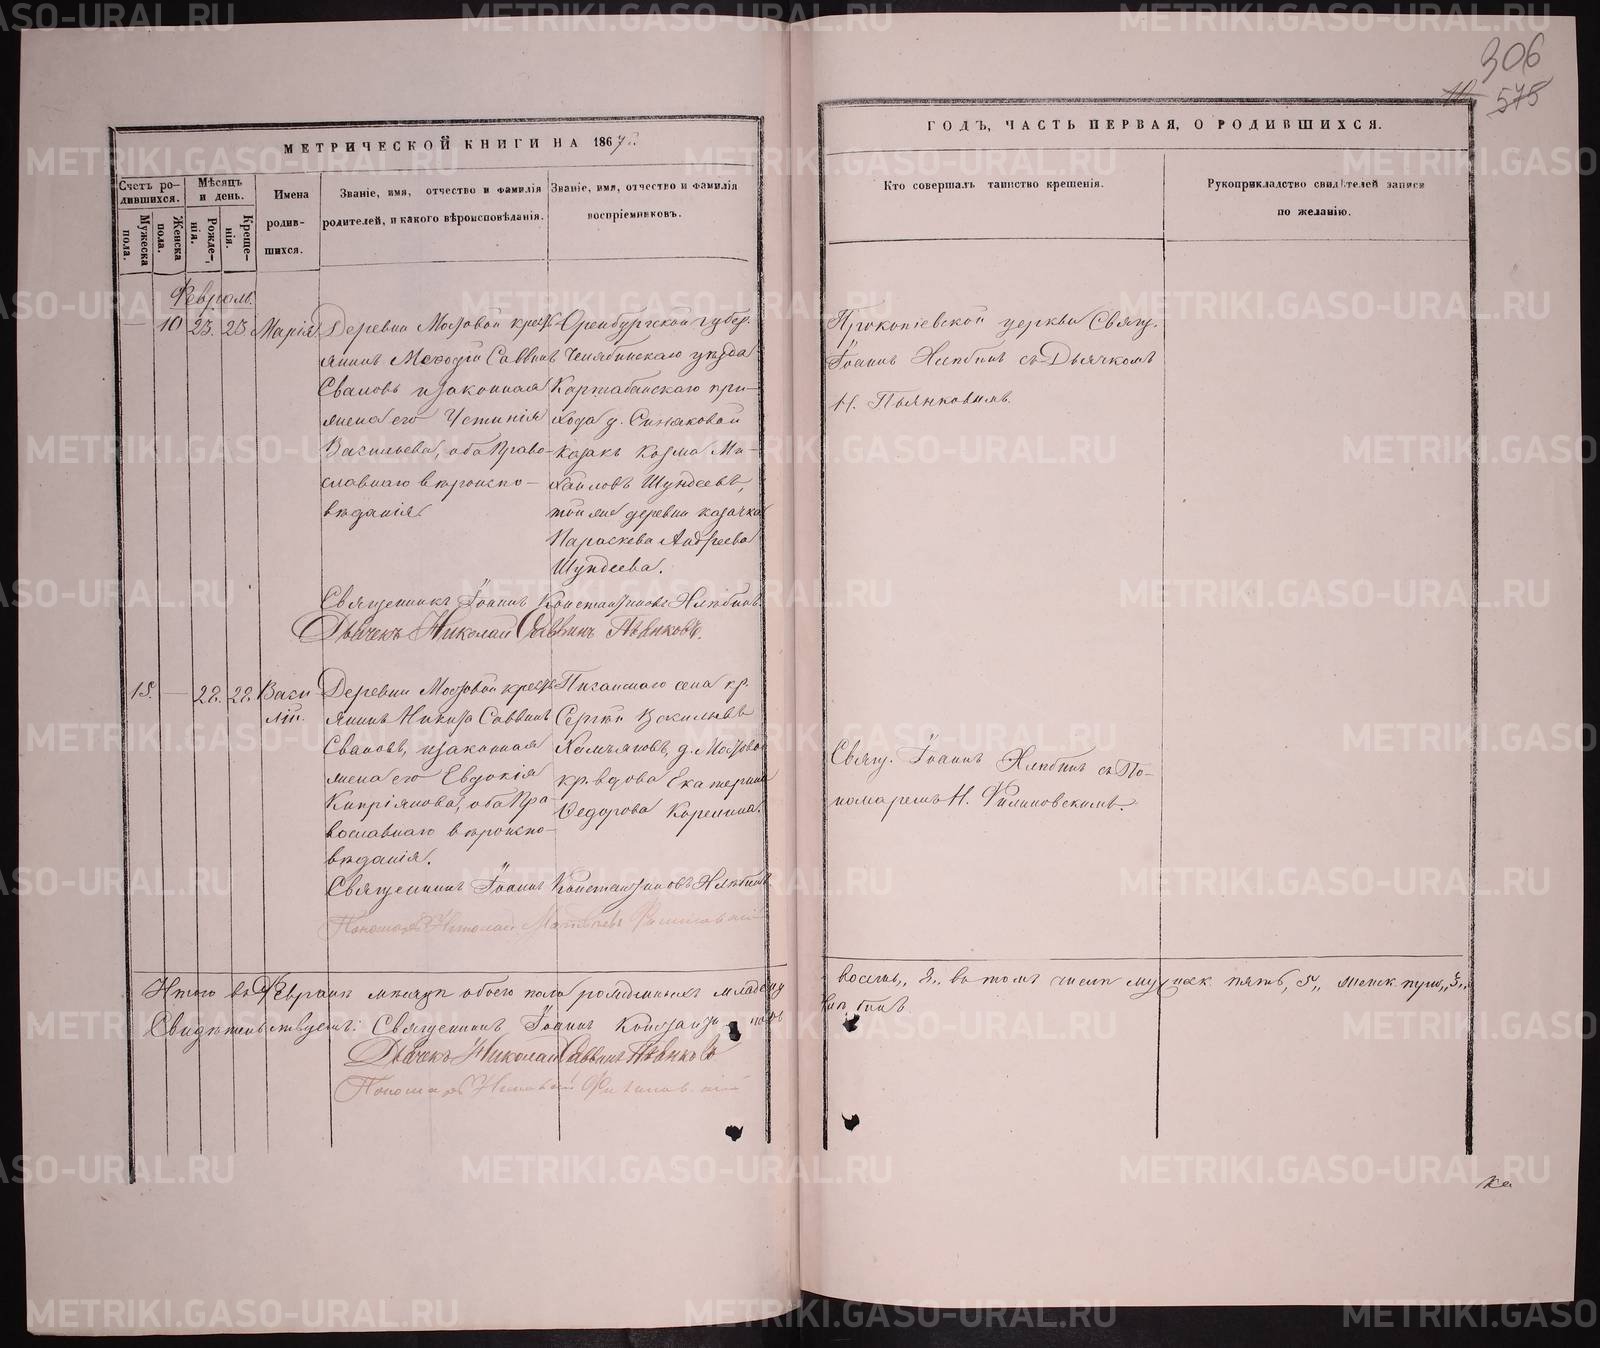 306
575
МЕТРИЧЕСКОЙ КНИГИ НА 1867
ГОДЪ, ЧАСТЬ ПЕРВАЯ, О РОДИВШИХСЯ.
Счетъ ро-
дившихся.
Мужеска
пола.
Женска
пола.
Мѣсяцъ
и день.
Рожде-
нія.
Креще-
нія.
Имена
родив-
шихся.
Званіе, имя, отчество и фамилія
родителей, и какого вѣроисповѣданія.
Званіе, имя, отчество и фамилія
воспріемниковъ.
Кто совершалъ таинство крещенія.
Рукоприкладство свидѣтелей записи
по желанію.
Февраль.
10 23. 23. Марія.
Деревни Мостовой кресть-
янинъ Меѳодій Саввинъ
Сваловъ и законная
жена его Устинія
Васильева, оба право-
славнаго вѣроиспо-
вѣданія.
Оренбургской губер.
Челябинскаго уѣзда
Картабанскаго при-
хода д. Синяковой
козакъ Козма Ми-
хайловъ Шундеевъ,
той же деревни казачка
Параскева Андреева
Шундеева.
Прокопіевской церкви Свящ.
Іоаннъ Хлѣбинъ съ Дьячкомъ
Н. Пьянковымъ.
Священникъ Іоаннъ Константиновъ Хлѣбинъ.
Дьячекъ Николай Саввинъ Пьянковъ.
15. — 28. 28. Васи
лій.
Деревни Мостовой кресть-
янинъ Никита Саввинъ
Сваловъ, и законная
жена его Евдокія
Кипріянова, оба Пра-
вославнаго вѣроиспо-
вѣданія.
села кр.
Сергій Васильевъ
д. Мостовой
кр. вдова Екатерина
Ѳедорова Карелина.
Свящ. Іоаннъ Хлѣбинъ съ По-
номаремъ Н. Филиновскимъ.
Священникъ Іоаннъ Константиновъ Хлѣбинъ
Пономарь Николай Матвѣевъ
Итого въ Февралѣ мѣсяцѣ обоего пола рожденныхъ младенц
восемь, 8, въ томъ числѣ мужск. пять, 5, женск. три, 3,
Свидѣтельствуетъ: Священникъ Іоаннъ
Дьячекъ Николай Саввинъ Пьянковъ
Пономарь Николай
METRIKI.GASO-URAL.RU